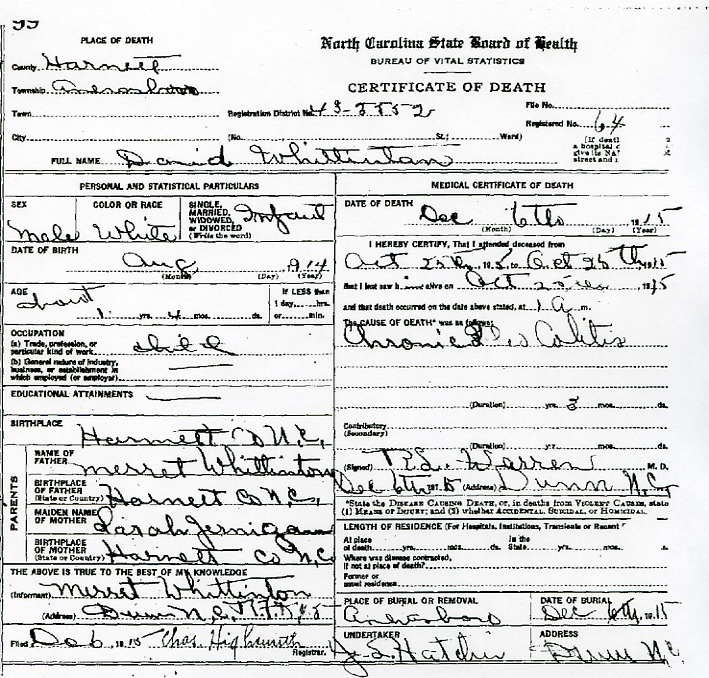 99
PLACE OF DEATH
North Carolina State Board of Health
BUREAU OF VITAL STATISTICS
County Harnett
CERTIFICATE OF DEATH
Township Averasboro
Town Registration District No. 43-5552 File No.
Registered No. 64
City (No. St.; Ward)
(If death
a hospital
give its NA
street and
FULL NAME David Whittinton
PERSONAL AND STATISTICAL PARTICULARS
SEX
Male
COLOR OR RACE
White
SINGLE, MARRIED, WIDOWED, or DIVORCED (Write the word)
Infant
DATE OF BIRTH
Aug 1914
(Month) (Day) (Year)
AGE
about 1 yrs. 4 mos. ds.
If LESS than
1 day, hrs.
or min.
OCCUPATION
(a) Trade, profession, or
particular kind of work child
(b) General nature of industry,
business, or establishment in
which employed (or employer)
EDUCATIONAL ATTAINMENTS
BIRTHPLACE
Harnett Co N.C.
PARENTS
NAME OF FATHER Merret Whittinton
BIRTHPLACE OF FATHER (State or Country) Harnett Co N.C.
MAIDEN NAME OF MOTHER Sarah Jernigan
BIRTHPLACE OF MOTHER (State or Country) Harnett Co N.C.
THE ABOVE IS TRUE TO THE BEST OF MY KNOWLEDGE
(Informant) Merret Whittinton
(Address) Dunn N.C. R.F.D. # 5
Filed Dec 6, 1915 Chas. Highsmith
Registrar.
MEDICAL CERTIFICATE OF DEATH
DATE OF DEATH
Dec 6th 1915
(Month) (Day) (Year)
I HEREBY CERTIFY, That I attended deceased from
Oct 1915, to Oct 1915
that I last saw him alive on Oct 1915
and that death occurred on the date above stated, at 1 A m.
The CAUSE OF DEATH* was as follows:
Chronic Colitis
(Duration) yrs. 3 mos. ds.
Contributory
(Secondary)
(Duration) yrs. mos. ds.
(Signed) Warren M. D.
Dec 6th, 1915 (Address) Dunn N.C.
*State the DISEASE CAUSING DEATH, or, in deaths from VIOLENT CAUSES, state
(1) MEANS OF INJURY; and (2) whether ACCIDENTAL, SUICIDAL, OR HOMICIDAL.
LENGTH OF RESIDENCE (For Hospitals, Institutions, Transients or Recent
At place
of death yrs. mos. ds.
In the
State yrs. mos. s.
Where was disease contracted,
if not at place of death?
Former or
usual residence
PLACE OF BURIAL OR REMOVAL
Averasboro
DATE OF BURIAL
Dec 6th, 1915
UNDERTAKER
ADDRESS
Dunn N.C.